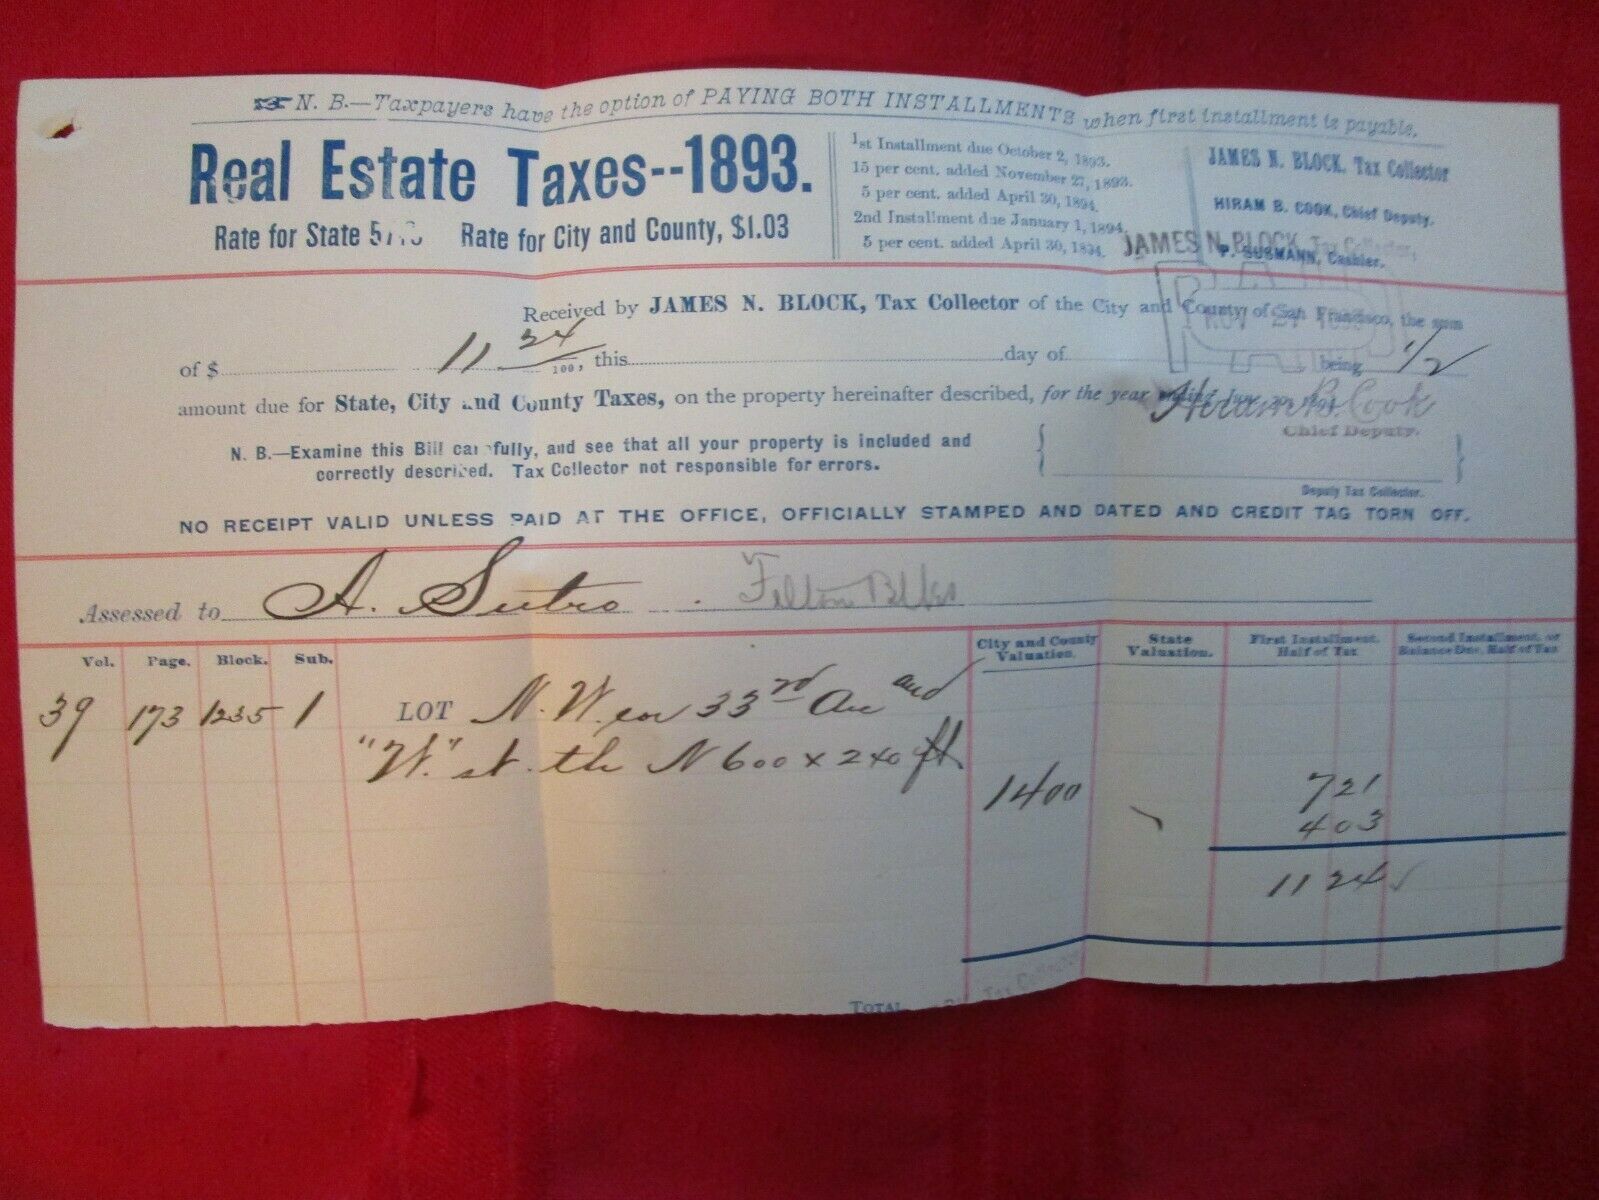 N. B.—Taxpayers have the option of PAYING BOTH INSTALLMENTS when first installment is payable.
Real Estate Taxes--1893.
Rate for State Rate for City and County, $1.03
1st Installment due October 2, 1893.
15 per cent. added November 27, 1893.
5 per cent. added April 30, 1894.
2nd Installment due January 1, 1894.
5 per cent. added April 30, 1894.
JAMES N. BLOCK, Tax Collector
HIRAM B. COOK, Chief Deputy.
P. SUSMANN, Cashier.
JAMES N. BLOCK, Tax Collector,
PAID
Received by JAMES N. BLOCK, Tax Collector of the City and County of San Francisco, the sum
of $ 11 24/100, this day of being 1/2
amount due for State, City and County Taxes, on the property hereinafter described, for the year ending
Hiram B. Cook
Chief Deputy.
N. B.—Examine this Bill carefully, and see that all your property is included and
correctly described. Tax Collector not responsible for errors.
Deputy Tax Collector.
NO RECEIPT VALID UNLESS PAID AT THE OFFICE, OFFICIALLY STAMPED AND DATED AND CREDIT TAG TORN OFF.
Assessed to A. Sutro Felton Blks
Vol. Page. Block. Sub. City and County Valuation. State Valuation. First Installment. Half of Tax Second Installment, or Balance Due, Half of Tax
39 173 1235 1 LOT N.W. cor 33rd Ave and
"W." st. th N 600 x 240 ft
1400 721
403
1124
TOTAL Tax Collector